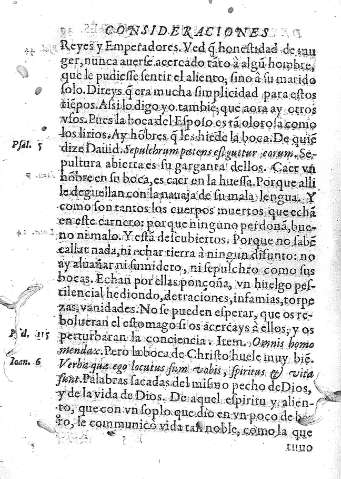 CONSIDERACIONES
Reyes y Emperadores. Ved q̃ honestidad de mu
ger, nunca auerse acercado tãto à algũ hombre,
que le pudiesse sentir el aliento, sino à su marido
solo. Direys q̃ era mucha simplicidad para estos
tiẽpos. Assi lo digo yo tambiẽ, que aora ay otros
vsos. Pues la boca del Esposo es tã olorosa como
los lirios. Ay hõbres q̃ les hiede la boca. De quiẽ
Psal. 5
dize Dauid. Sepulchrum patens est guttur eorum. Se-
pultura abierta es su garganta dellos. Caer vn
hõbre en su boca, es caer en la huessa. Porque alli
le deguellan con la nauaja de su mala lengua. Y
como son tantos los cuerpos muertos que echã
en este carnero; porque ninguno perdonã, bue-
no ni malo. Y estã descubiertos. Porque no sabẽ
callar nada, ni echar tierra à ningun difunto: no
ay aluañar ni sumidero, ni sepulchro como sus
bocas. Echan por ellas ponçoña, vn huelgo pes-
tilencial hediondo, detraciones, infamias, torpe
zas, vanidades. No se pueden esperar, que os re-
bolueran el estomago si os acercays à ellos, y os
Psal. 115
perturbaran la conciencia. Item. Omnis homo
mendax. Pero la boca de Christo huele muy biẽ.
Ioan. 6
Verba quæ ego locutus sum vobis, spiritus & vita
sunt. Palabras sacadas del mismo pecho de Dios,
y de la vida de Dios. De aquel espiritu y alien-
to, que con vn soplo que dio en vn poco de ba-
ro, le communicò vida tan noble, como la que